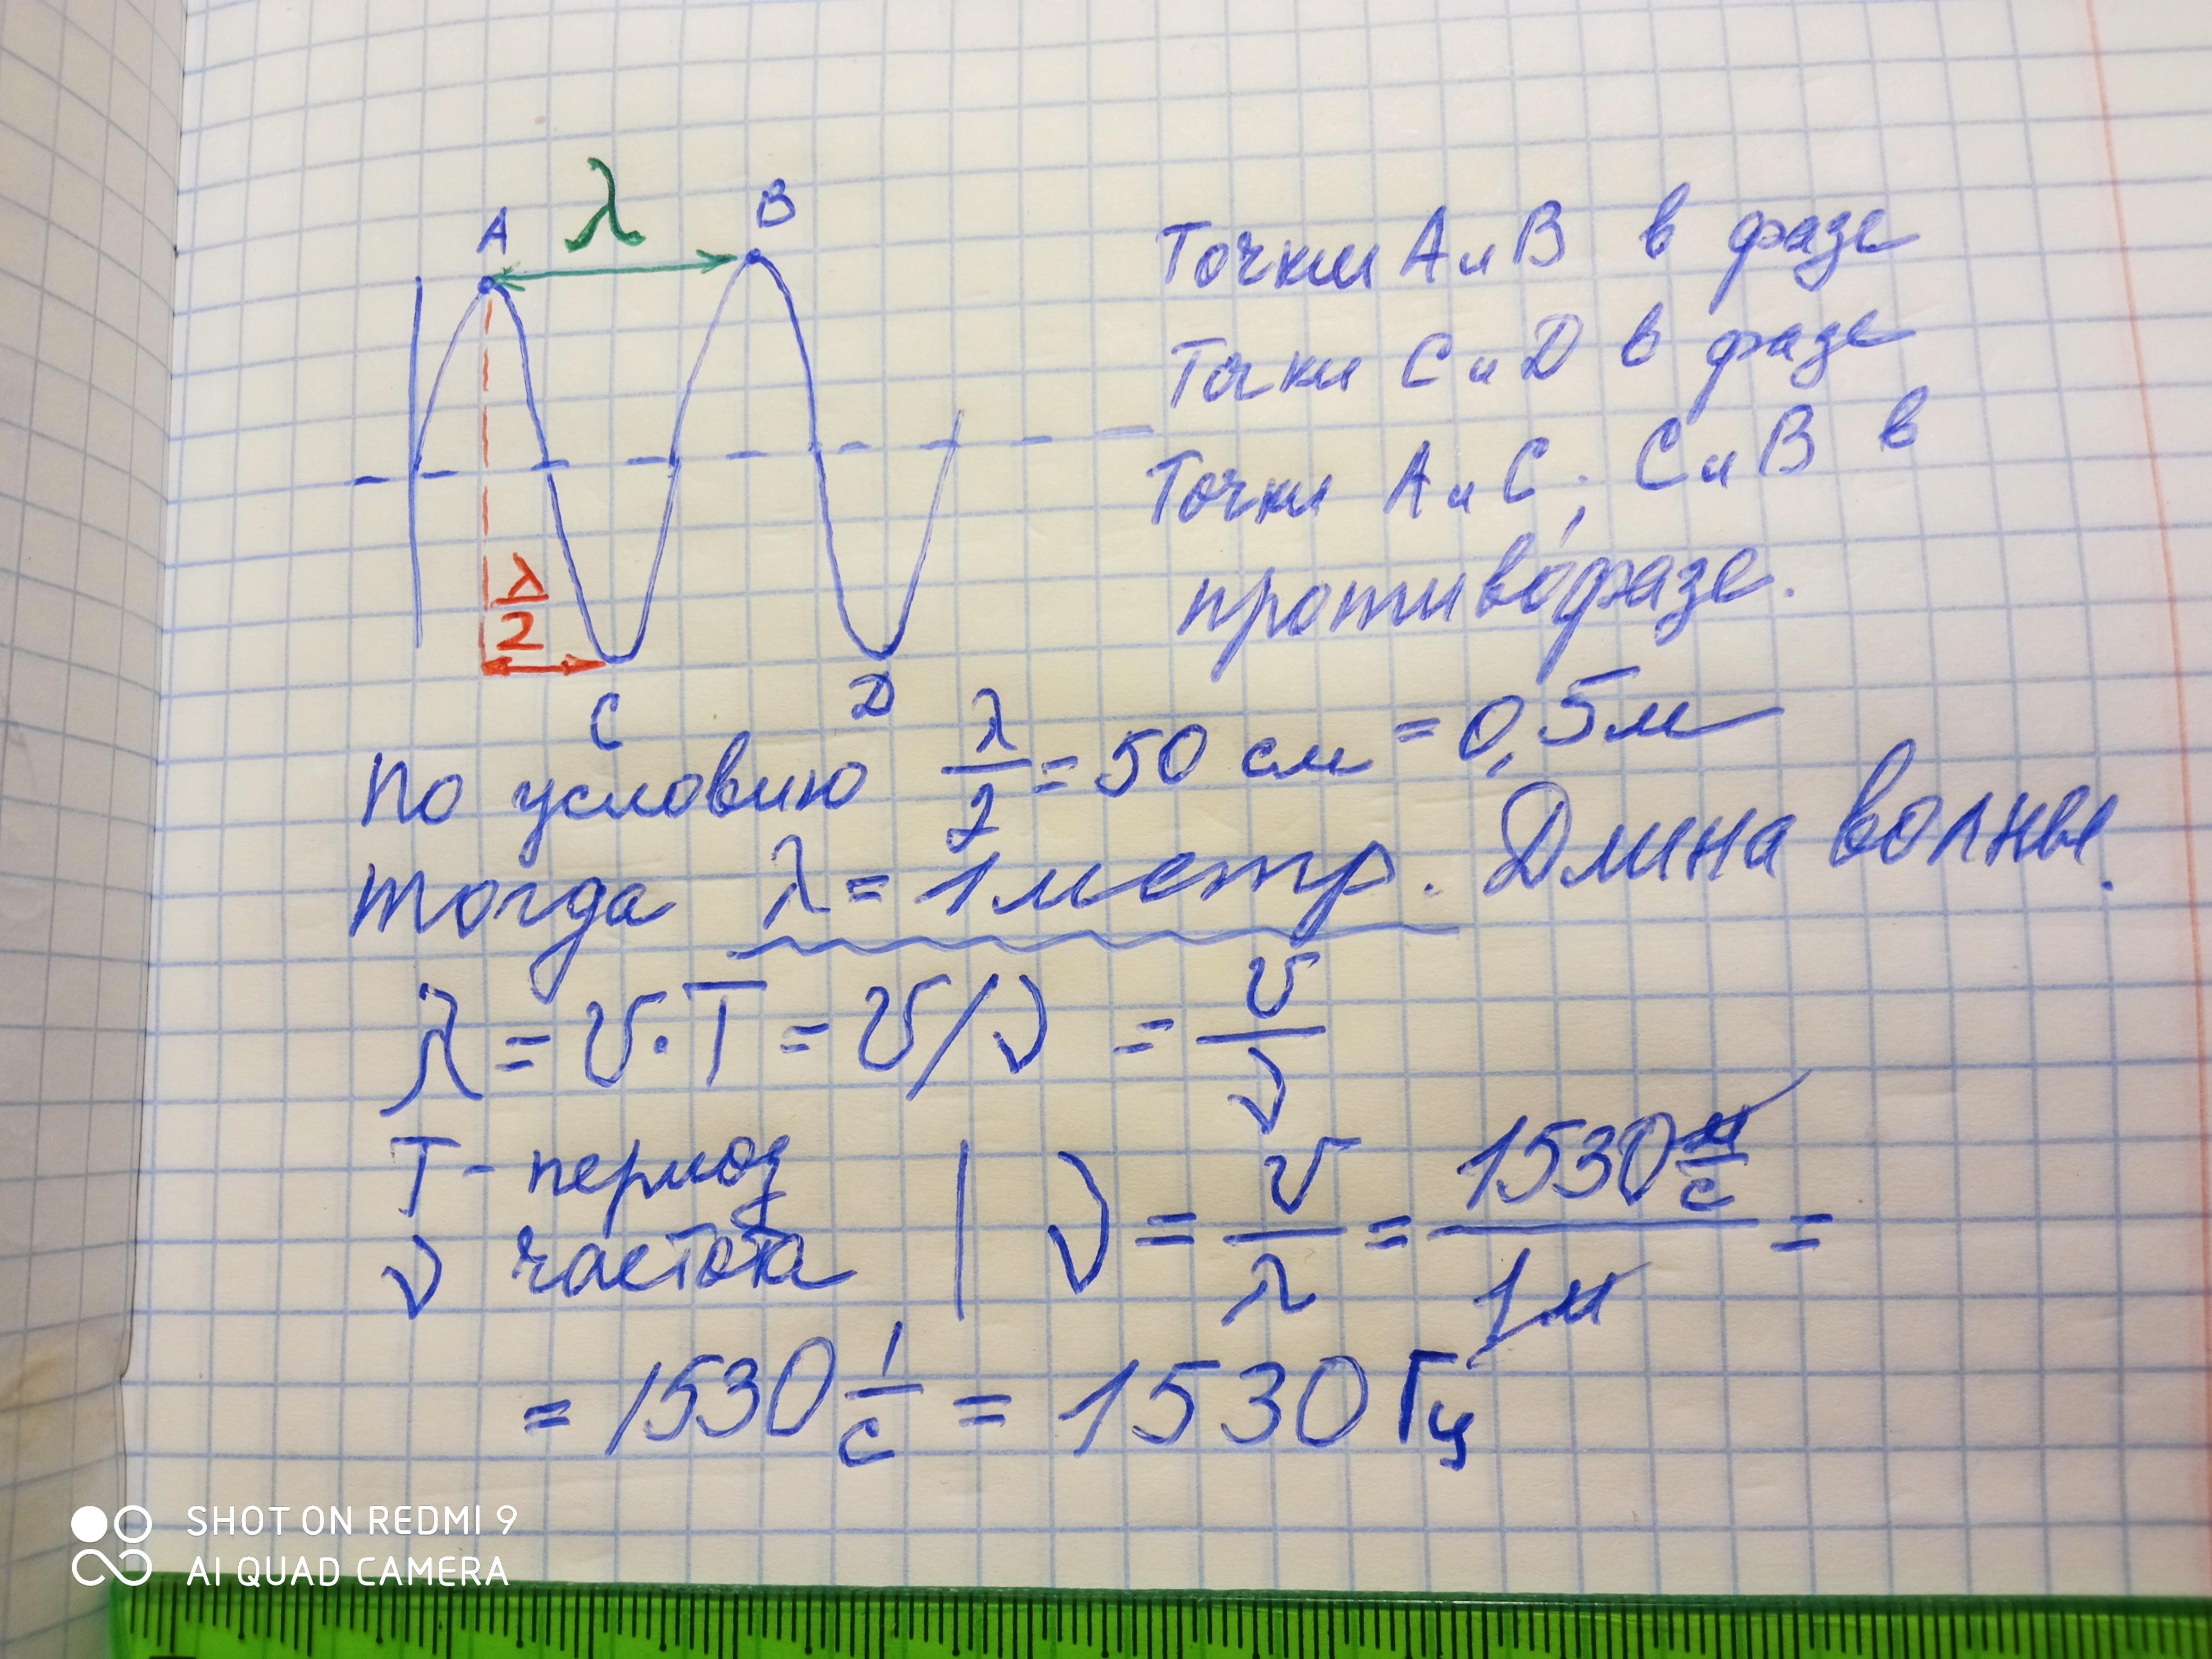 λ
A
B
λ/2
C
D
Точки А и В в фазе
Точки С и D в фазе
Точки А и С; С и В в
противофазе.
По условию λ/2 = 50 см = 0,5 м
тогда λ = 1 метр. Длина волны.
λ = υ·T = υ/ν = υ/ν
T - период
ν частота | ν = υ/λ = 1530 м/с / 1 м =
= 1530 1/с = 1530 Гц
SHOT ON REDMI 9
AI QUAD CAMERA